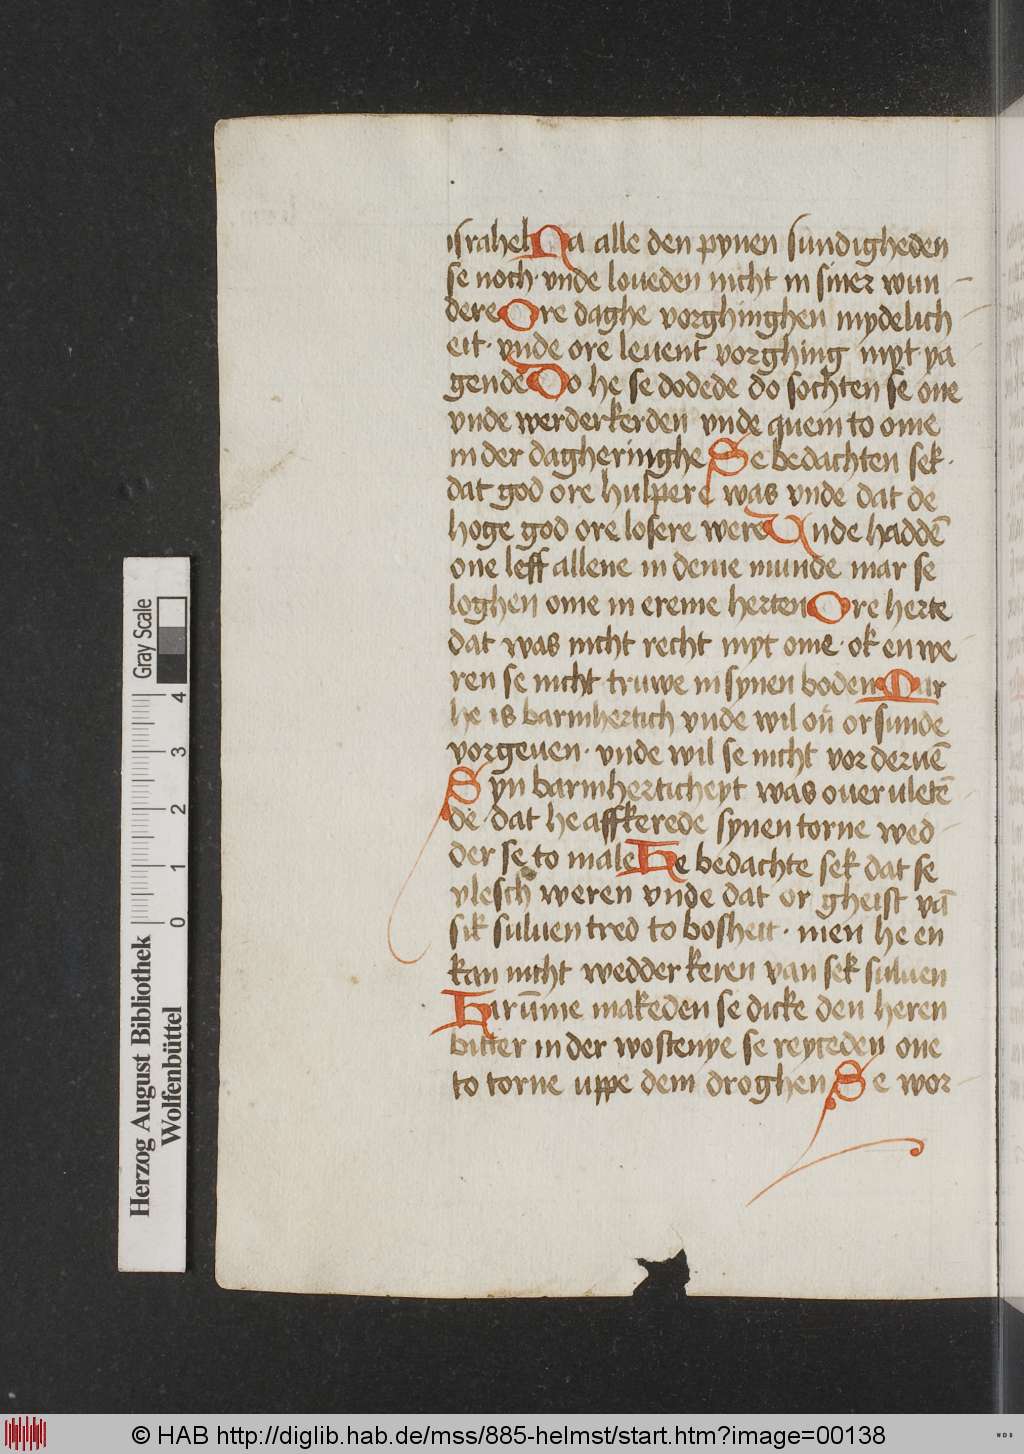 israhel Na alle den pynen sundigheden
se noch · vnde loueden nicht in siner wun
dere Ore daghe vorghinghen mydelich
eit · vnde ore leuent vorghing myt ya
gende Do he se dodede do sochten se one
vnde werderkerden vnde quem to ome
in der dagheringhe Se bedachten sek ·
dat god ore hulpere was vnde dat de
hoge god ore losere were Vnde haddē
one leff allene in deme munde mar se
loghen ome in ereme herten Ore herte
dat was nicht recht myt ome · ok en we
ren se nicht truwe in synen boden Mar
he is barmhertich vnde wil on̄ or sunde
vorgeuen · vnde wil se nicht vor deruē
Syn barmherticheyt was ouer uletē
de · dat he affkerede synen torne wed
der se to male He bedachte sek dat se
vlesch weren vnde dat or gheist vā
sik suluen tred to bosheit · men he en
kan nicht wedder keren van sek suluen
Harūme makeden se dicke den heren
bitter in der wostenye se reyceden one
to torne uppe dem droghen Se wor
Gray Scale
0 1 2 3 4
Herzog August Bibliothek
Wolfenbüttel
© HAB http://diglib.hab.de/mss/885-helmst/start.htm?image=00138